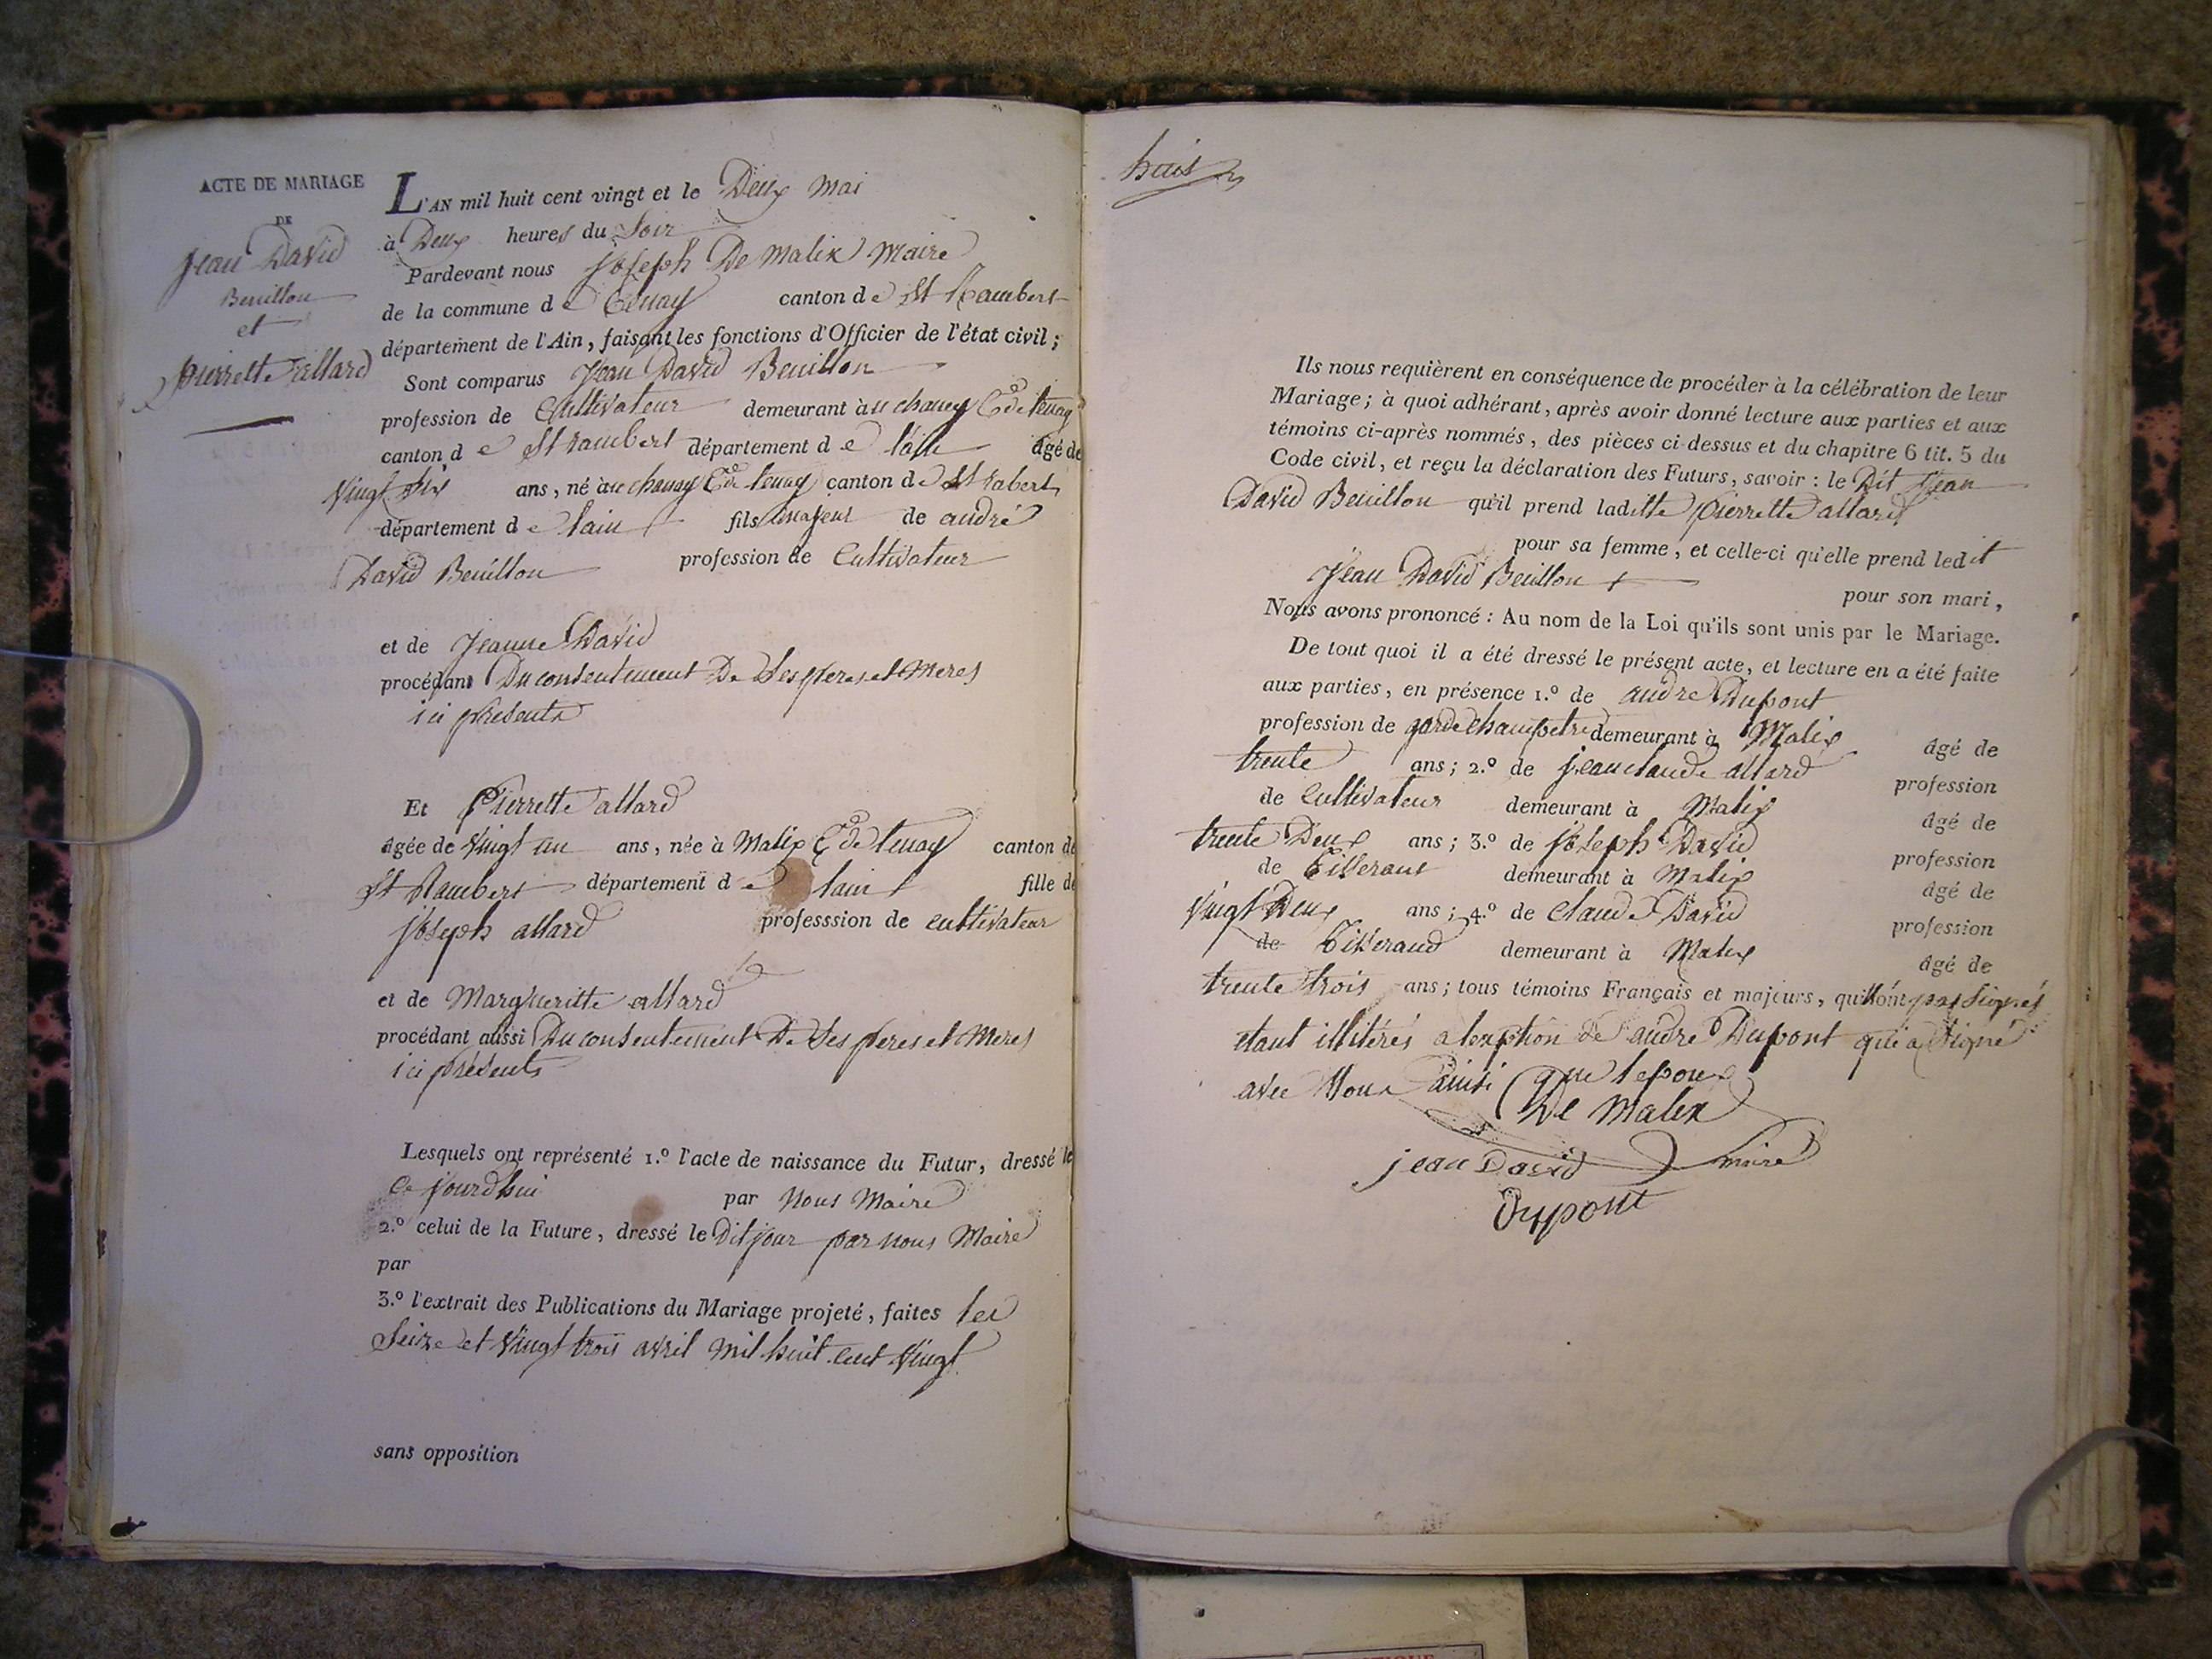 ACTE DE MARIAGE
DE
Jean David
Beuillon
et
pierrette allard
L'AN mil huit cent vingt et le Deux Mai
à Deux heures du Soir
Pardevant nous joseph De Malix Maire
de la commune de Tenay canton de St Rambert
département de l'Ain, faisant les fonctions d'Officier de l'état civil;
Sont comparus Jean David Beuillon
profession de Cultivateur demeurant à au chanay Cne de tenay
canton de St rambert département de l'ain âgé de
Vingt Six ans, né à au chanay Cne de tenay canton de St rabert
département de lain fils majeur de andré
David Beuillon profession de Cultivateur
et de Jeanne David
procédant Du consentement De Ses peres et Meres
ici presents
Et Pierrette allard
âgée de Vingt un ans, née à Malix Cne de tenay canton de
St Rambert département de lain fille de
joseph allard professsion de cultivateur
et de Margueritte allard
procédant aussi Du consentement De Ses peres et Meres
ici présents
Lesquels ont représenté 1.º l'acte de naissance du Futur, dressé le
Ce jourdhui par Nous Maire
2.º celui de la Future, dressé le Dit jour par nous Maire
par
3.º l'extrait des Publications du Mariage projeté, faites les
Seize et Vingt trois avril Mil huit cent Vingt
sans opposition
huit
Ils nous requièrent en conséquence de procéder à la célébration de leur
Mariage; à quoi adhérant, après avoir donné lecture aux parties et aux
témoins ci-après nommés, des pièces ci-dessus et du chapitre 6 tit. 5 du
Code civil, et reçu la déclaration des Futurs, savoir : le Dit Jean
David Beuillon qu'il prend laditte pierrette allard
pour sa femme, et celle-ci qu'elle prend ledit
Jean David Beuillon
pour son mari,
Nous avons prononcé : Au nom de la Loi qu'ils sont unis par le Mariage.
De tout quoi il a été dressé le présent acte, et lecture en a été faite
aux parties, en présence 1.º de andre Dupont
profession de garde champetre demeurant à Malix âgé de
trente ans; 2.º de jean claude allard profession
de Cultivateur demeurant à Malix âgé de
trente Deux ans; 3.º de joseph David profession
de Tisserant demeurant à Malix âgé de
Vingt Deux ans; 4.º de Claude David profession
de Tisserand demeurant à Malix âgé de
trente trois ans; tous témoins Français et majeurs, qui n'ont pas Signés
etant illitérés a lexption de andre Dupont qui a Signé
avec Nous ainsi que lepoux
De Malix
maire
jean David
Dupont